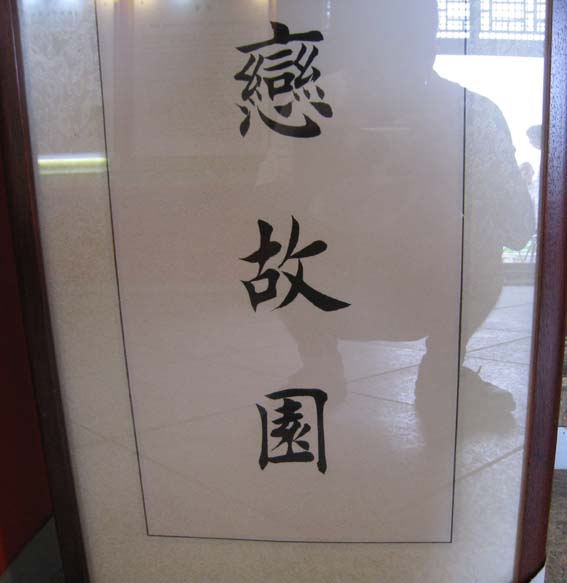 戀故園